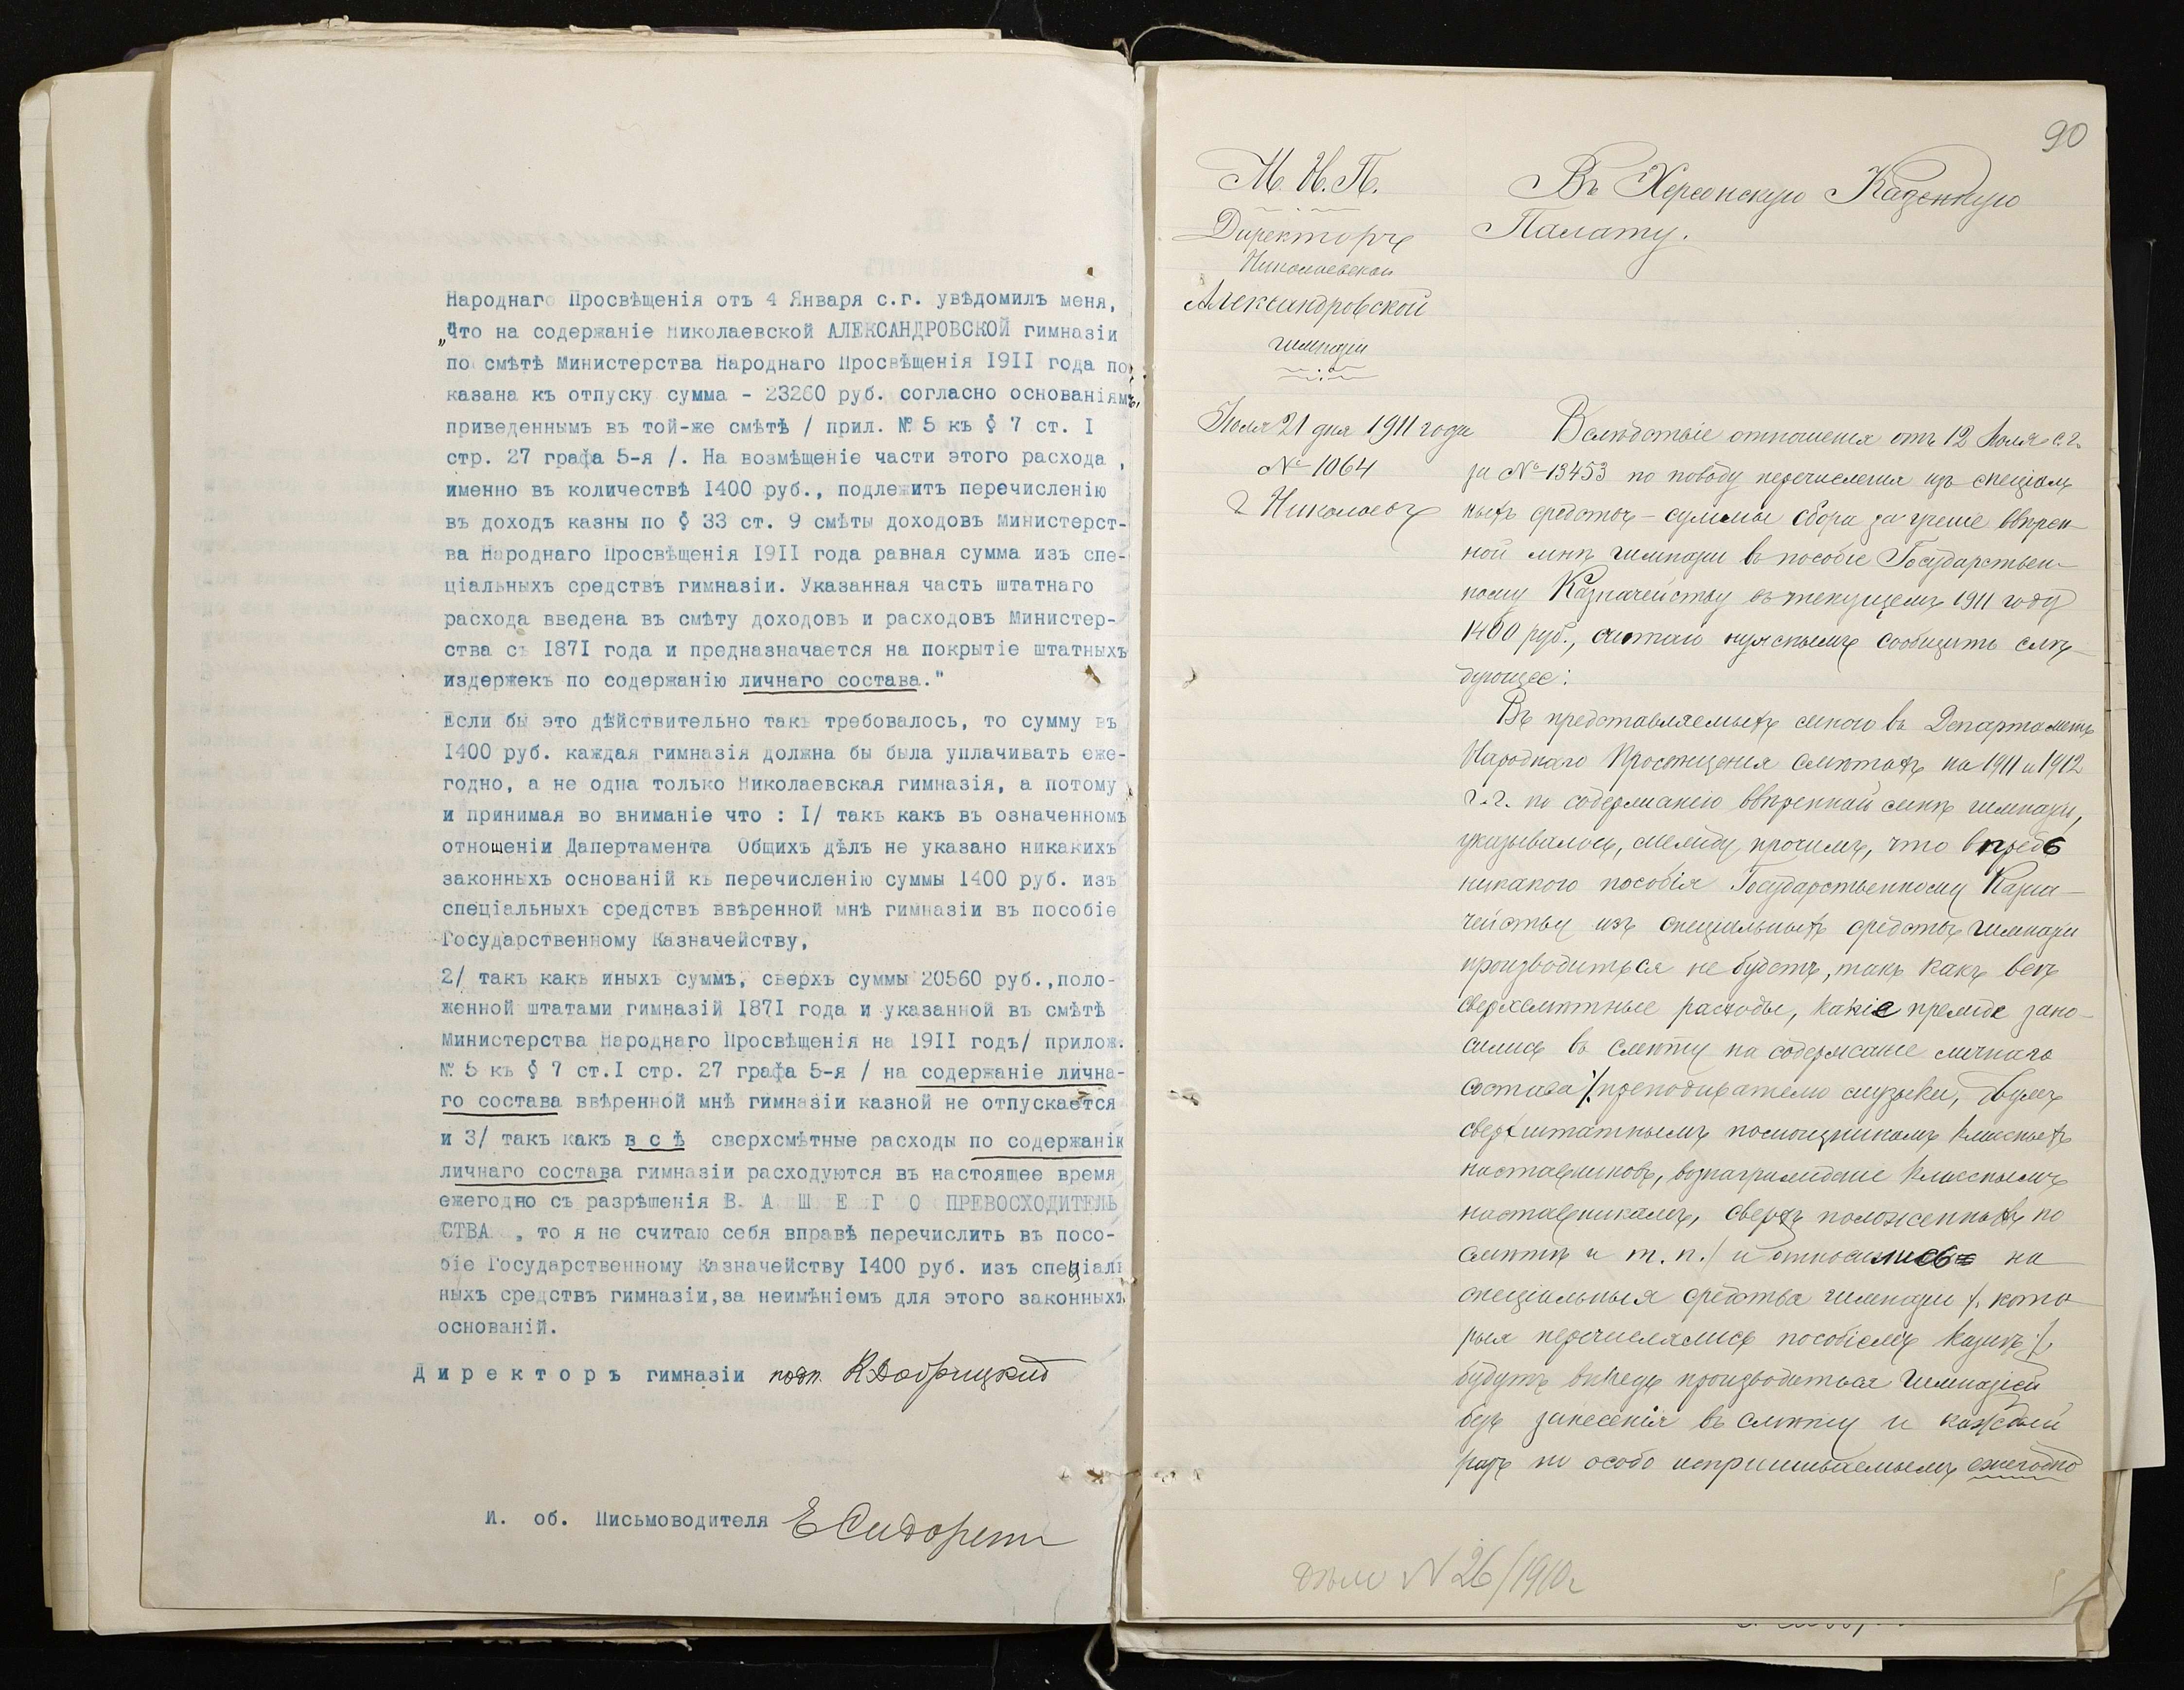 Народнаго Просвѣщенія отъ 4 Января с.г. увѣдомилъ меня,
„что на содержаніе Николаевской АЛЕКСАНДРОВСКОЙ гимназіи
по смѣтѣ Министерства Народнаго Просвѣщенія 1911 года по
казана къ отпуску сумма - 23260 руб. согласно основаніямъ,
приведеннымъ въ той-же смѣтѣ / прил. № 5 къ § 7 ст. I
стр. 27 графа 5-я /. На возмѣщеніе части этого расхода ,
именно въ количествѣ 1400 руб., подлежитъ перечисленію
въ доходъ казны по § 33 ст. 9 смѣты доходовъ Министерст-
ва Народнаго Просвѣщенія 1911 года равная сумма изъ спе-
ціальныхъ средствъ гимназіи. Указанная часть штатнаго
расхода введена въ смѣту доходовъ и расходовъ Министер-
ства съ 1871 года и предназначается на покрытіе штатныхъ
издержекъ по содержанію личнаго состава."
Если бы это дѣйствительно такъ требовалось, то сумму въ
1400 руб. каждая гимназія должна бы была уплачивать еже-
годно, а не одна только Николаевская гимназія, а потому
и принимая во вниманіе что : I/ такъ какъ въ означенномъ
отношеніи Дапертамента Общихъ дѣлъ не указано никакихъ
законныхъ основаній къ перечисленію суммы 1400 руб. изъ
спеціальныхъ средствъ ввѣренной мнѣ гимназіи въ пособіе
Государственному Казначейству,
2/ такъ какъ иныхъ суммъ, сверхъ суммы 20560 руб.,поло-
женной штатами гимназій 1871 года и указанной въ смѣтѣ
Министерства Народнаго Просвѣщенія на 1911 годъ/ прилож.
№ 5 къ § 7 ст.I стр. 27 графа 5-я / на содержаніе лична-
го состава ввѣренной мнѣ гимназіи казной не отпускается
и 3/ такъ какъ всѣ сверхсмѣтные расходы по содержанію
личнаго состава гимназіи расходуются въ настоящее время
ежегодно съ разрѣшенія В А Ш Е Г О ПРЕВОСХОДИТЕЛЬ
СТВА , то я не считаю себя вправѣ перечислить въ посо-
біе Государственному Казначейству 1400 руб. изъ спеціаль
ныхъ средствъ гимназіи,за неимѣніемъ для этого законныхъ
основаній.
Директоръ гимназіи подп. К Добрицкий
И. об. Письмоводителя Е Сидорен
90
М. Н. П.
Директоръ
Николаевской
Александровской
гимназіи
Іюля 21 дня 1911 года
№ 1064
г Николаевъ
Въ Херсонскую Казенную
Палату.
Вслѣдствіе отношенія отъ 12 Іюля с.г.
за № 13453 по поводу перечисленія изъ спеціаль
ныхъ средствъ - суммы сбора за ученіе ввѣрен-
ной мнѣ гимназіи въ пособіе Государствен-
ному Казначейству въ текущемъ 1911 году
1400 руб., считаю нужнымъ сообщить слѣ-
дующее:
Въ представляемыхъ мною въ Департаментъ
Народнаго Просвѣщенія смѣтахъ на 1911 и 1912
г.г. по содержанію ввѣренной мнѣ гимназіи,
указывалось, между прочимъ, что впредь
никакого пособія Государственному Казна-
чейству изъ спеціальныхъ средствъ гимназіи
производиться не будетъ, такъ какъ всѣ
сверхсмѣтные расходы, какіе прежде зано-
сились въ смѣту на содержаніе личнаго
состава /: преподавателю музыки, двумъ
сверхштатнымъ помощникамъ классныхъ
наставниковъ, вознагражденіе класснымъ
наставникамъ, сверхъ положенныхъ по
смѣтѣ и т. п./ и относились на
спеціальныя средства гимназіи /: кото
рыя перечислялись пособіемъ казнѣ :/,
будутъ впредь производиться гимназіей
безъ занесенія въ смѣту и каждый
разъ по особо испрашиваемымъ ежегодно
дѣло № 26/1910 г